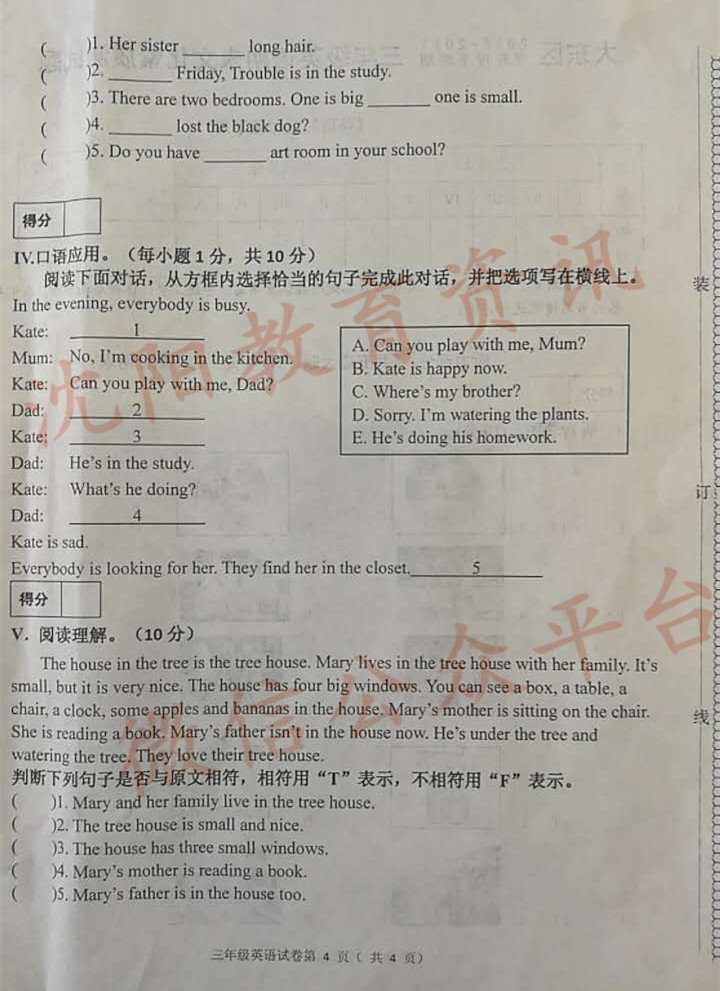 ( )1. Her sister ________ long hair.
( )2. ________ Friday, Trouble is in the study.
( )3. There are two bedrooms. One is big ________ one is small.
( )4. ________ lost the black dog?
( )5. Do you have ________ art room in your school?
得分
IV.口语应用。（每小题 1 分，共 10 分）
阅读下面对话，从方框内选择恰当的句子完成此对话，并把选项写在横线上。
In the evening, everybody is busy.
Kate: ____1____
Mum: No, I'm cooking in the kitchen.
Kate: Can you play with me, Dad?
Dad: ____2____
Kate: ____3____
Dad: He's in the study.
Kate: What's he doing?
Dad: ____4____
A. Can you play with me, Mum?
B. Kate is happy now.
C. Where's my brother?
D. Sorry. I'm watering the plants.
E. He's doing his homework.
Kate is sad.
Everybody is looking for her. They find her in the closet.____5____
得分
V. 阅读理解。（10 分）
The house in the tree is the tree house. Mary lives in the tree house with her family. It's
small, but it is very nice. The house has four big windows. You can see a box, a table, a
chair, a clock, some apples and bananas in the house. Mary's mother is sitting on the chair.
She is reading a book. Mary's father isn't in the house now. He's under the tree and
watering the tree. They love their tree house.
判断下列句子是否与原文相符，相符用“T”表示，不相符用“F”表示。
( )1. Mary and her family live in the tree house.
( )2. The tree house is small and nice.
( )3. The house has three small windows.
( )4. Mary's mother is reading a book.
( )5. Mary's father is in the house too.
三年级英语试卷第 4 页（ 共 4 页）
装
订
线
沈阳教育资讯
微信公众平台